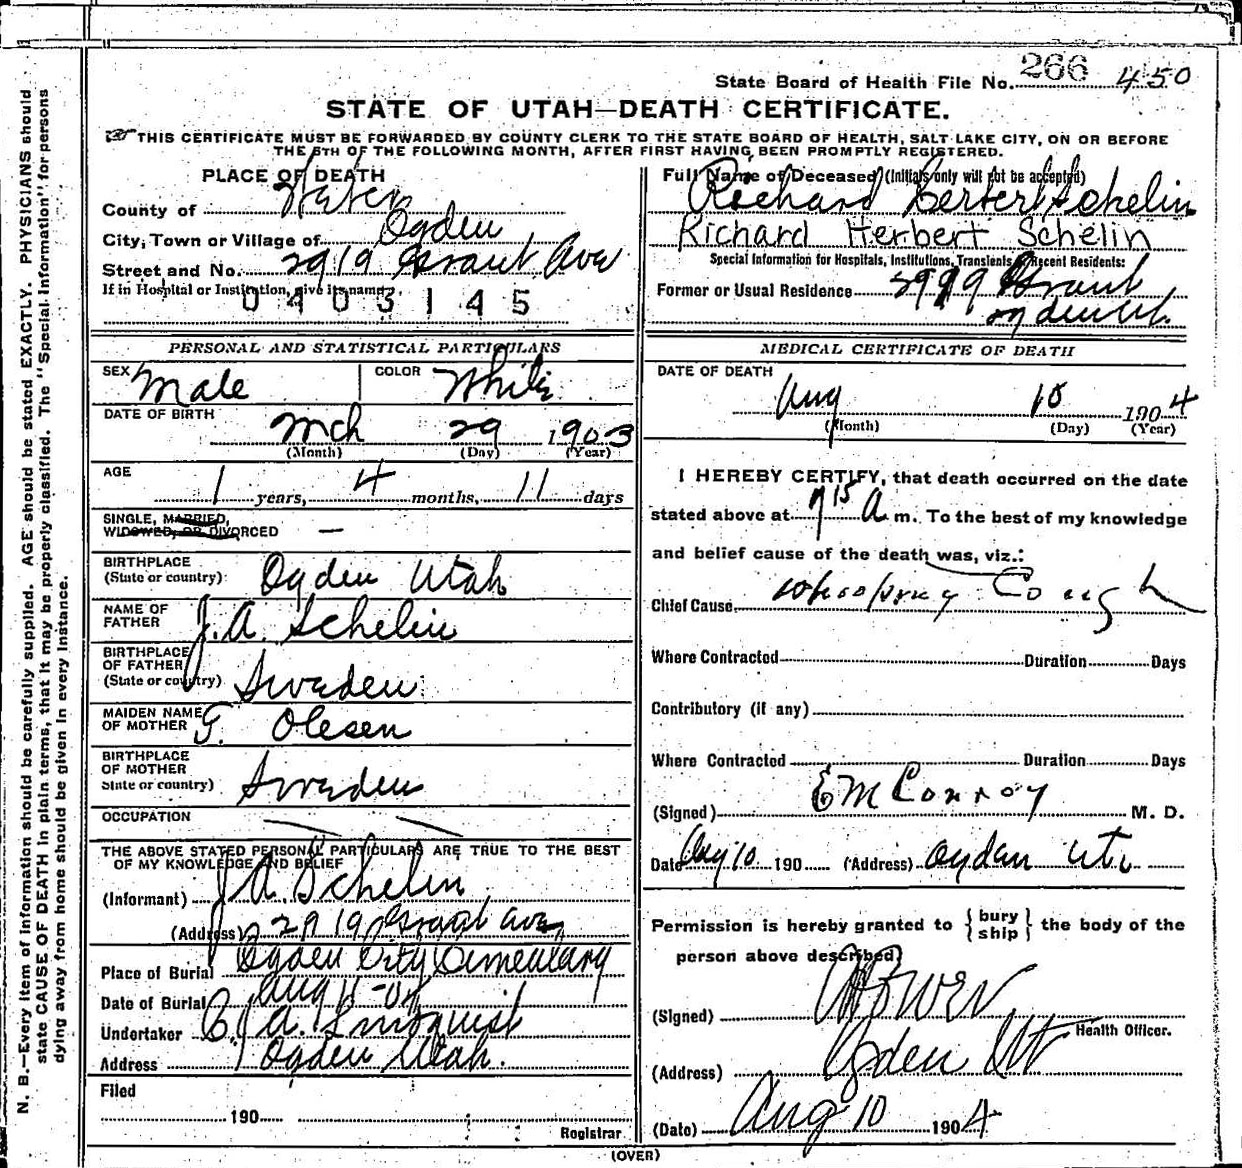 State Board of Health File No. 266 450
STATE OF UTAH—DEATH CERTIFICATE.
THIS CERTIFICATE MUST BE FORWARDED BY COUNTY CLERK TO THE STATE BOARD OF HEALTH, SALT LAKE CITY, ON OR BEFORE
THE 5TH OF THE FOLLOWING MONTH, AFTER FIRST HAVING BEEN PROMPTLY REGISTERED.
PLACE OF DEATH
County of Weber
City, Town or Village of Ogden
Street and No. 2919 Grant Ave
If in Hospital or Institution, give its name
0403145
Full Name of Deceased (Initials only will not be accepted)
Richard Herbert Schelin
Richard Herbert Schelin
Special Information for Hospitals, Institutions, Transients, or Recent Residents:
Former or Usual Residence 2919 Grant
Ogden Ut.
PERSONAL AND STATISTICAL PARTICULARS
SEX Male COLOR White
DATE OF BIRTH
Mch 29 1903
(Month) (Day) (Year)
AGE
1 years, 4 months, 11 days
SINGLE, MARRIED,
WIDOWED, OR DIVORCED —
BIRTHPLACE
(State or country) Ogden Utah
NAME OF
FATHER J. A. Schelin
BIRTHPLACE
OF FATHER
(State or country) Sweden
MAIDEN NAME
OF MOTHER G. Olesen
BIRTHPLACE
OF MOTHER
State or country) Sweden
OCCUPATION
THE ABOVE STATED PERSONAL PARTICULARS ARE TRUE TO THE BEST
OF MY KNOWLEDGE AND BELIEF
(Informant) J A. Schelin
(Address) 2919 Grant Ave
Place of Burial Ogden City Cemetary
Date of Burial Aug 11-04
Undertaker C. A. Lindquist
Address Ogden Utah.
Filed
190
Registrar
MEDICAL CERTIFICATE OF DEATH
DATE OF DEATH
Aug 10 1904
(Month) (Day) (Year)
I HEREBY CERTIFY, that death occurred on the date
stated above at 7 15 A m. To the best of my knowledge
and belief cause of the death was, viz.:
Chief Cause, Whooping Cough
Where Contracted Duration Days
Contributory (if any)
Where Contracted Duration Days
(Signed) E M Conroy M. D.
Date Aug 10 190 (Address) Ogden Ut.
Permission is hereby granted to { bury
ship } the body of the
person above described
(Signed)
Health Officer.
(Address) Ogden Ut
(Date) Aug 10 1904
(OVER)
N. B.—Every item of information should be carefully supplied. AGE should be stated EXACTLY. PHYSICIANS should
state CAUSE OF DEATH in plain terms, that it may be properly classified. The "Special Information" for persons
dying away from home should be given in every instance.